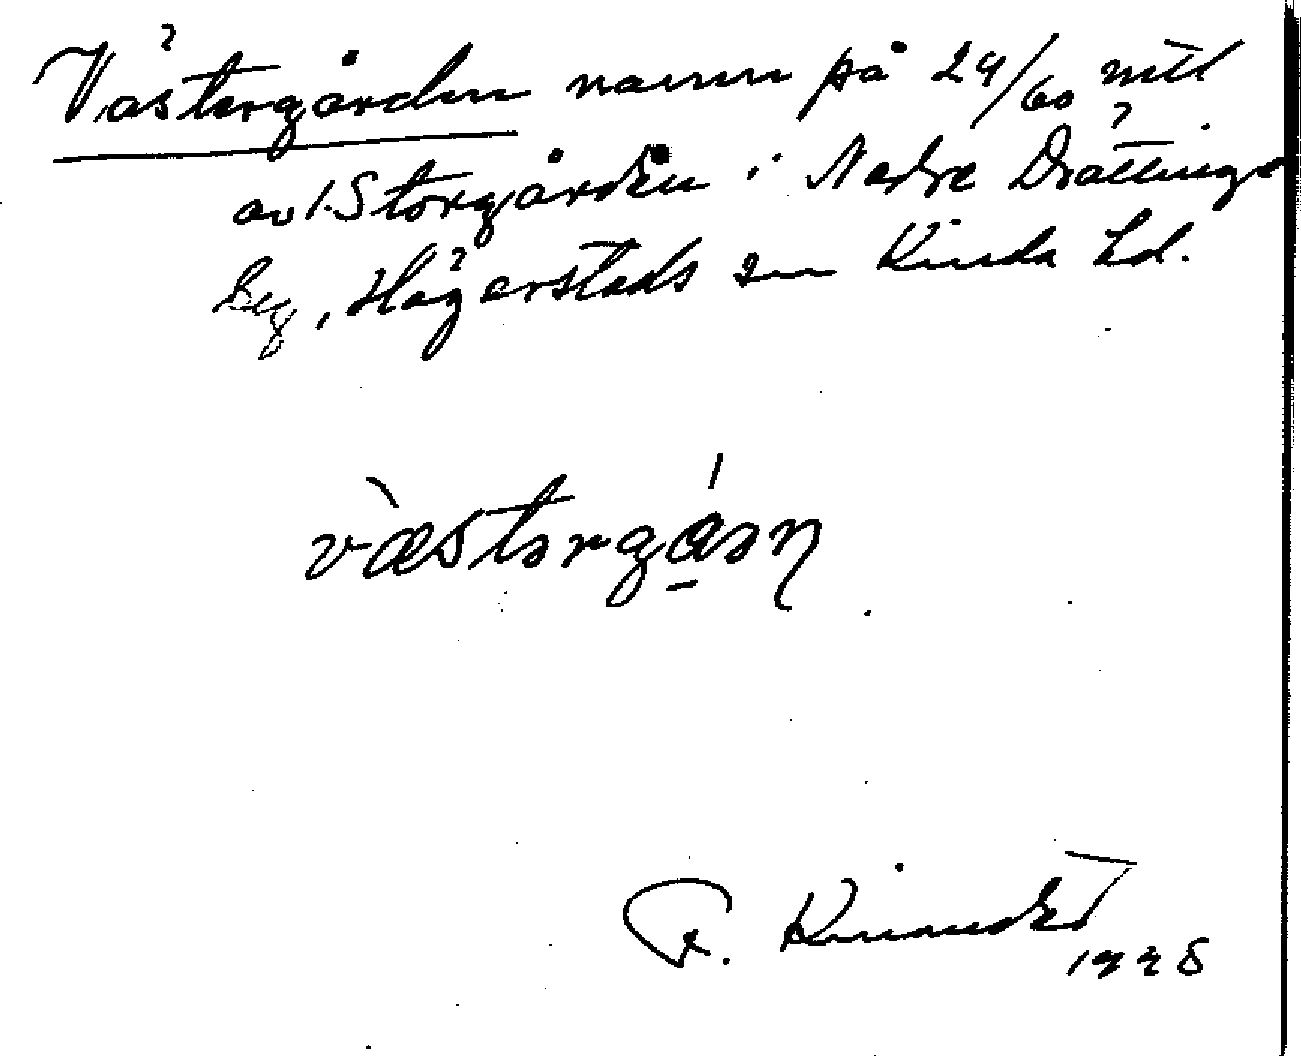 Västergården namn på 24/60 mtl
av 1. Storgården i Nedre Drättinge
Beg, Hägerstads sn Kinda hd.
vàstərgá̱ən
F. Kinander
1928